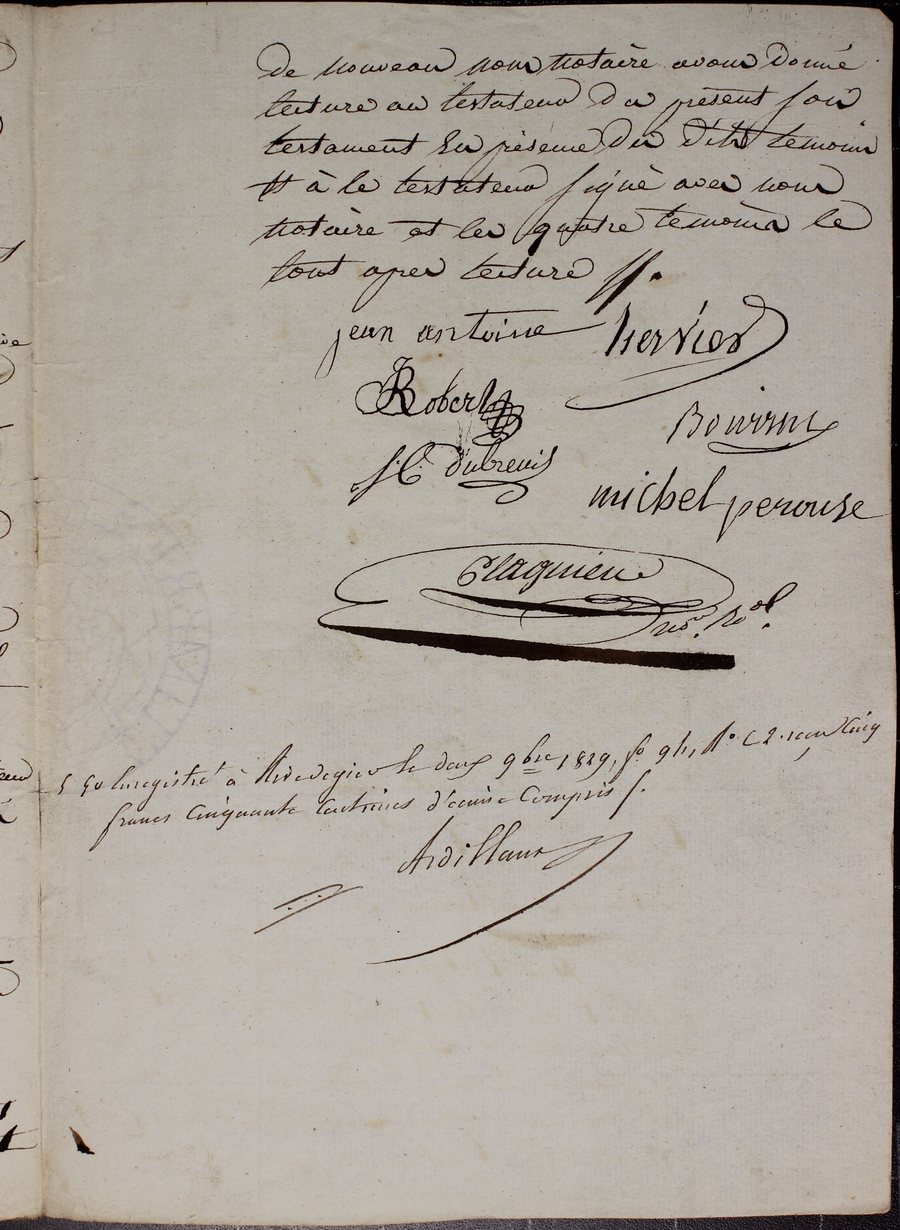 de nouveau nous notaire avons donné
lecture au testateur du présent son
testament En présence des dits temoins
& à le testateur signé avec nous
notaire et les quatre temoins le
tout apres lecture
jean antoine hervier
Robert
Bourrin
J. C. dubreuis
michel perouse
Plagnieu
no.re R.al
5 50 Enregistré à Rivedegier le deux 9bre 1819, f° 91, reçu Cinq
francs Cinquante Centimes d'écime Compris
Ardillaux